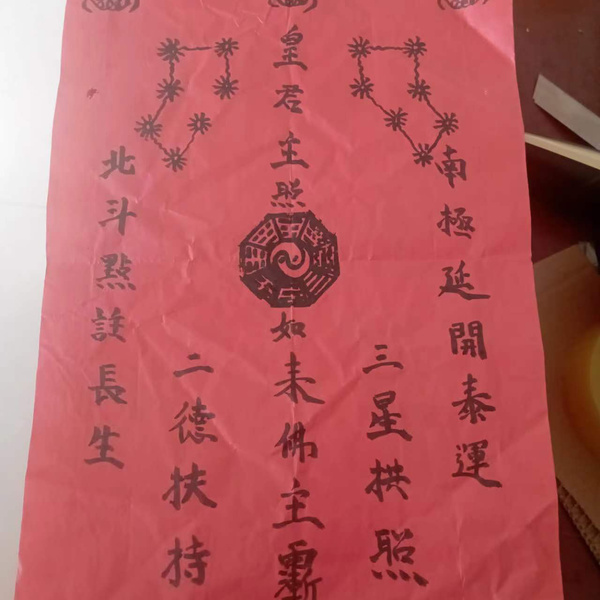 南極延開泰運
三星拱照
皇君主照如来佛主
二德扶持
北斗點註長生